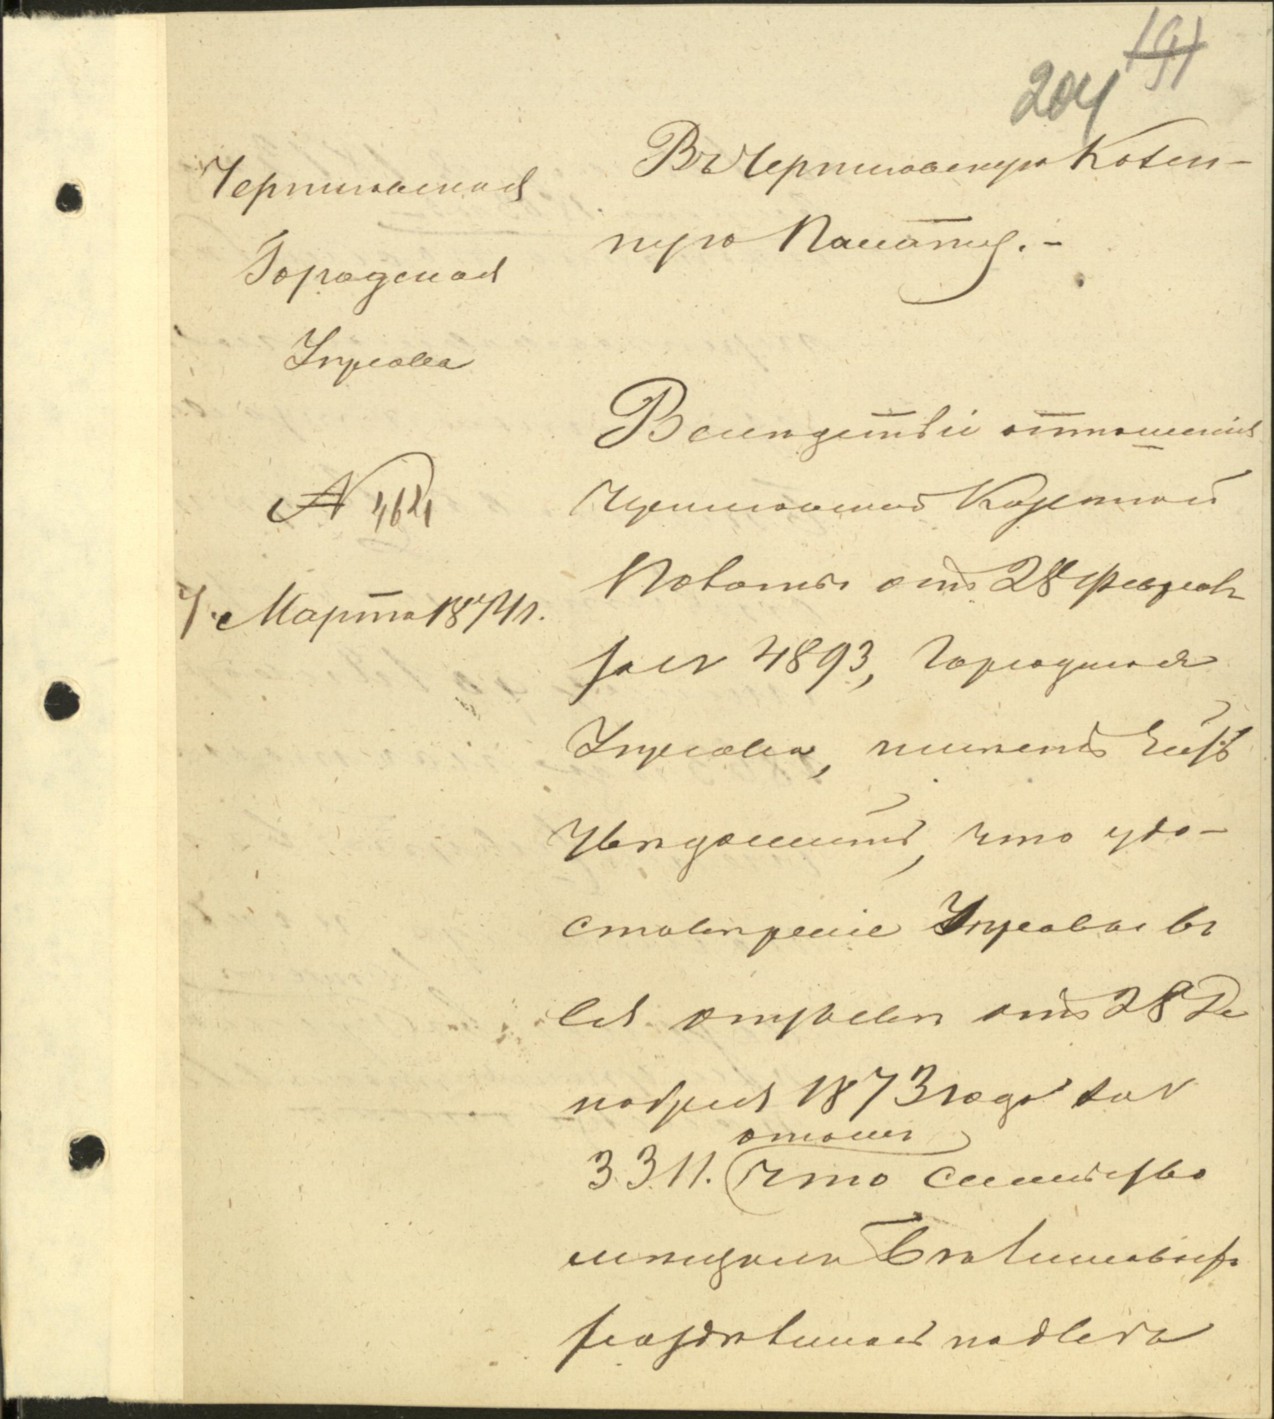 204 191
Черниговская
Городская
Управа
№ 462
7 Марта 1874 г.
Въ Черниговскую Казен-
ную Палату.-
Вследствіи отношенія
Черниговской Казенной
Палаты отъ 28 Февраля
за № 4893, Городская
Управа, имеетъ честь
увѣдомить, что удо-
стовѣреніе Управою вы
отъ 28 Де
кабря 1873 года за №
3311. что семейство
мѣщанъ